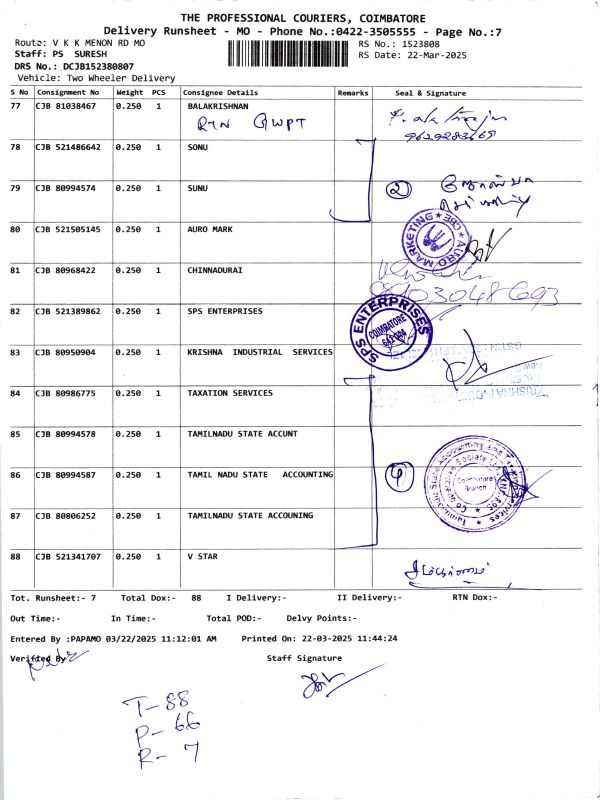 THE PROFESSIONAL COURIERS, COIMBATORE
Delivery Runsheet - MO - Phone No.:0422-3505555 - Page No.:7
Route: V K K MENON RD MO
RS No.: 1523808
Staff: PS SURESH
RS Date: 22-Mar-2025
DRS No.: DCJB152380807
Vehicle: Two Wheeler Delivery
S No Consignment No Weight PCS Consignee Details Remarks Seal & Signature
77 CJB 81038467 0.250 1 BALAKRISHNAN
RTN
9629283669
78 CJB 521486642 0.250 1 SONU
79 CJB 80994574 0.250 1 SUNU
2
80 CJB 521505145 0.250 1 AURO MARK
AURO MARKETING ★ CBE ★
81 CJB 80968422 0.250 1 CHINNADURAI
82 CJB 521389862 0.250 1 SPS ENTERPRISES
SPS ENTERPRISES
COIMBATORE
83 CJB 80950904 0.250 1 KRISHNA INDUSTRIAL SERVICES
84 CJB 80986775 0.250 1 TAXATION SERVICES
85 CJB 80994578 0.250 1 TAMILNADU STATE ACCUNT
86 CJB 80994587 0.250 1 TAMIL NADU STATE ACCOUNTING
Coimbatore
Branch
87 CJB 80806252 0.250 1 TAMILNADU STATE ACCOUNING
88 CJB 521341707 0.250 1 V STAR
Tot. Runsheet:- 7 Total Dox:- 88 I Delivery:- II Delivery:- RTN Dox:-
Out Time:- In Time:- Total POD:- Delvy Points:-
Entered By :PAPAMO 03/22/2025 11:12:01 AM Printed On: 22-03-2025 11:44:24
Verified By Staff Signature
T- 88
P- 66
R- 7